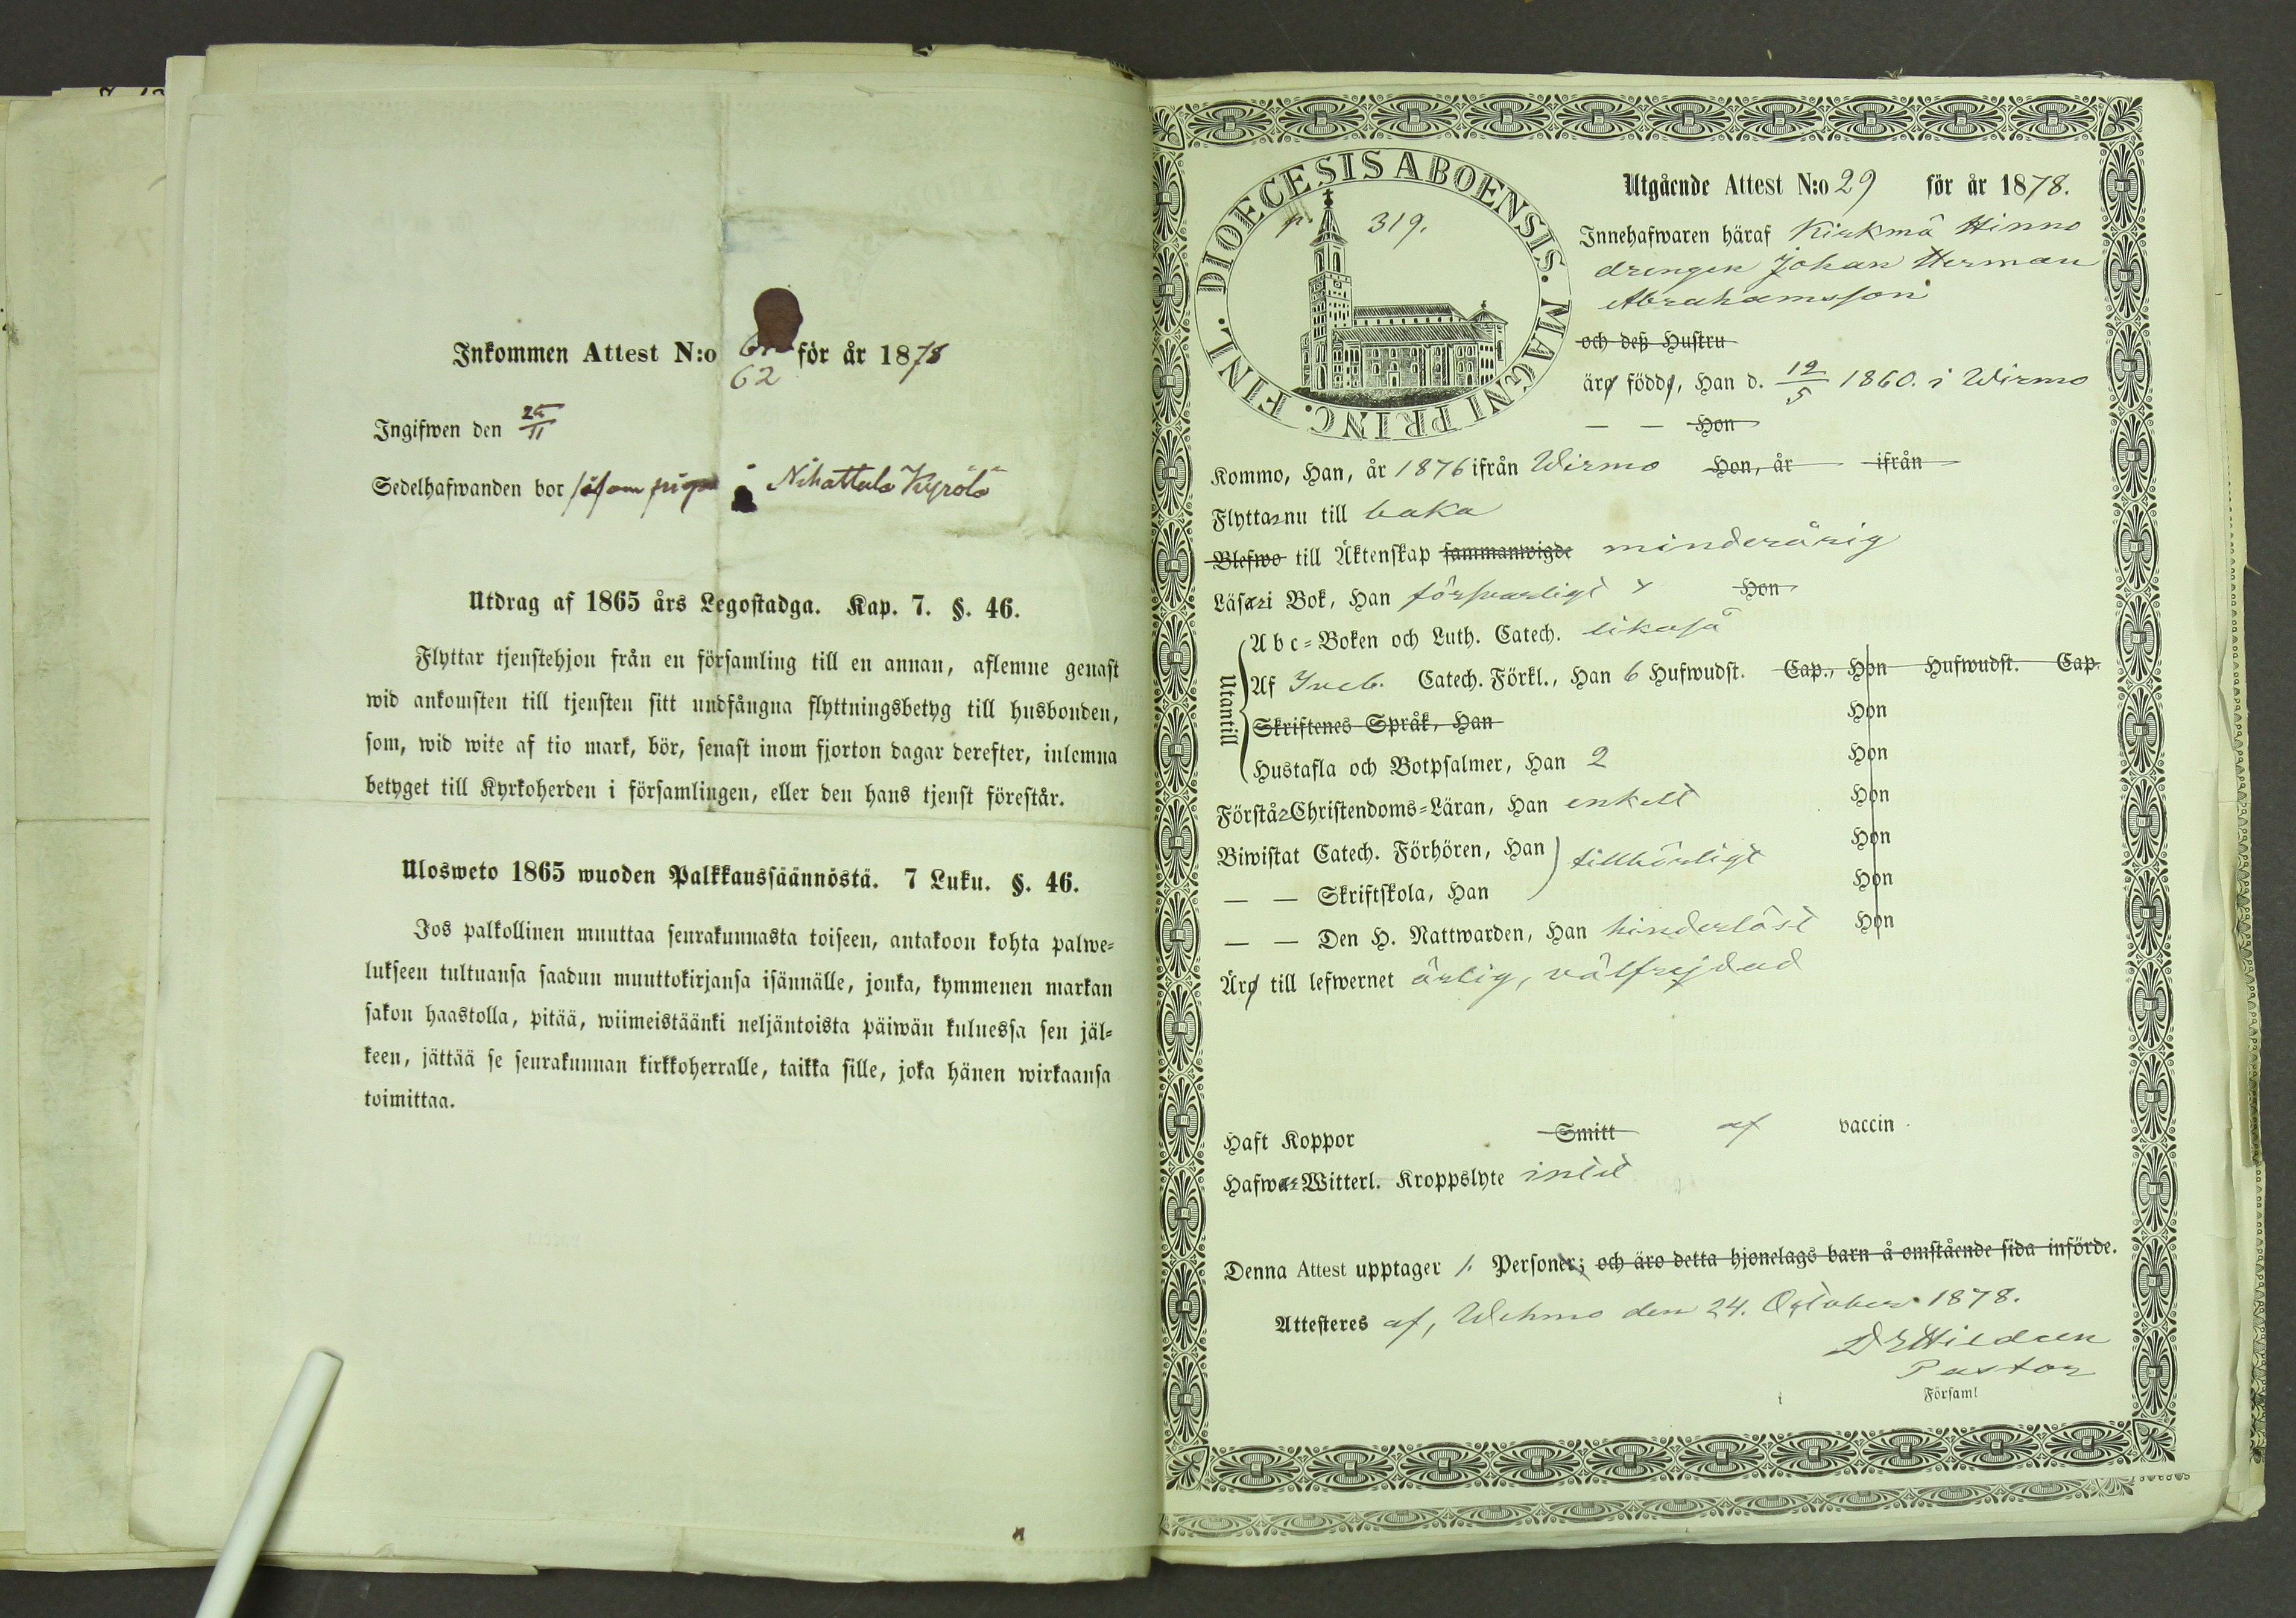 Inkommen Attest N:o 62 för år 1878
Ingifwen den 25/11
Sedelhafwanden bor såsom piga i Nihattula Kyrölä
Utdrag af 1865 års Legostadga. Kap. 7. §. 46.
Flyttar tjenstehjon från en församling till en annan, aflemne genast
wid ankomsten till tjensten sitt undfångna flyttningsbetyg till husbonden,
som, wid wite af tio mark, bör, senast inom fjorton dagar derefter, inlemna
betyget till Kyrkoherden i församlingen, eller den hans tjenst förestår.
Ulosweto 1865 wuoden Palkkaussäännöstä. 7 Luku. §. 46.
Jos palkollinen muuttaa seurakunnasta toiseen, antakoon kohta palwe-
lukseen tultuansa saadun muuttokirjansa isännälle, jonka, kymmenen markan
sakon haastolla, pitää, wiimeistäänki neljäntoista päiwän kuluessa sen jäl-
keen, jättää se seurakunnan kirkkoherralle, taikka sille, joka hänen wirkaansa
toimittaa.
DIOECESIS ABOENSIS. MAGNI PRINC. FINL.
p. 319.
Utgående Attest N:o 29 för år 1878.
Innehafwaren häraf Kirkmä Hinno
drengen Johan Herman
Abrahamsson
och deß Hustru
äro födde, Han d. 12/5 1860. i Wirmo
— — Hon
Kommo, Han, år 1876 ifrån Wirmo Hon, år ifrån
Flyttar nu till baka
Blefwo till Äktenskap sammanwigde minderårig
Läser i Bok, Han försvarligt Hon
Utantill
Abc-Boken och Luth. Catech. likaså
Af Sveb. Catech. Förkl., Han 6 Hufwudst. Cap., Hon Hufwudst. Cap.
Skriftenes Språk, Han Hon
Hustafla och Botpsalmer, Han 2 Hon
Förstår Christendoms-Läran, Han enkelt Hon
Biwistat Catech. Förhören, Han tillbörligt Hon
— — Skriftskola, Han Hon
— — Den H. Nattwarden, Han hinderlöst Hon
Äro till lefwernet ärlig, välfrejdad
Haft Koppor Smitt af vaccin
Hafwer Witterl. Kroppslyte intet
Denna Attest upptager 1. Personer; och äro detta hjonelags barn å omstående sida införde.
Attesteres af, Wehmo den 24. October 1878.
Pastor
i Församl